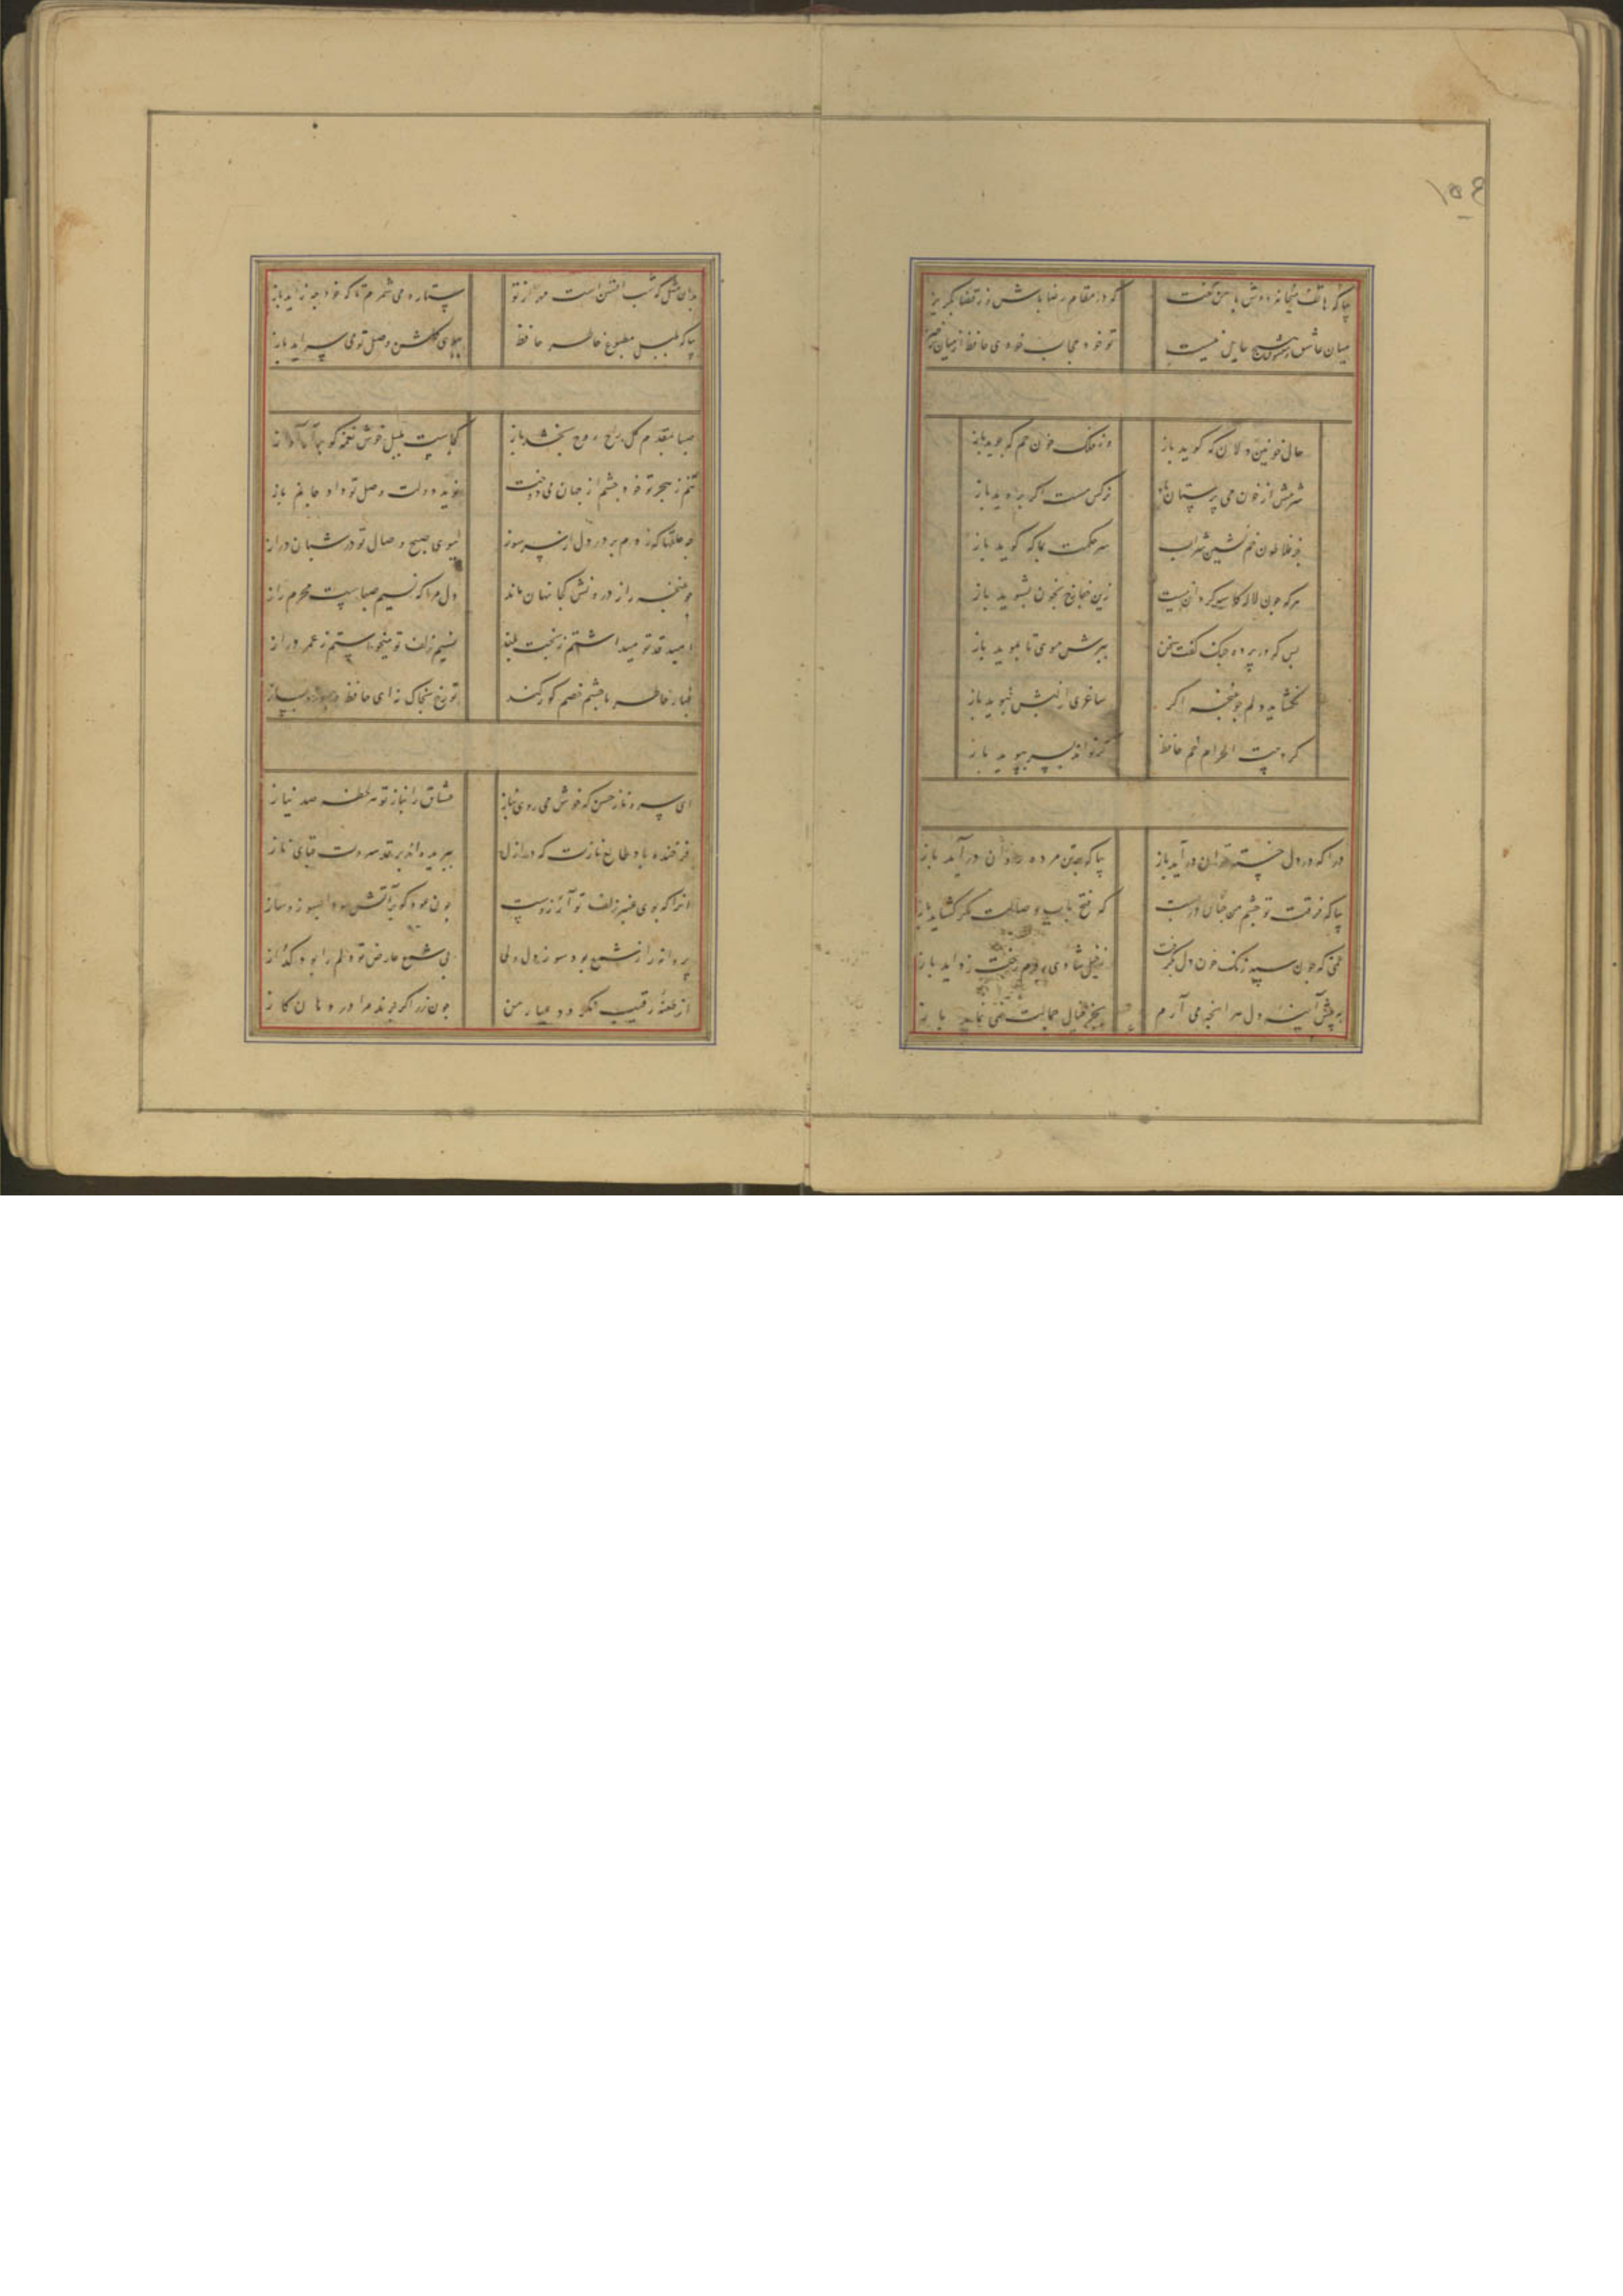 ۱۵۴
بیا که هاتف میخانه دوش با من گفت که در مقام رضا باش وز قضا مگریز
میان عاشق و معشوق هیچ حایل نیست تو خود حجاب خودی حافظ از میان برخیز
حال خونین دلان که گوید باز وز فلک خون خم که جوید باز
شرمش از خون می پرستان باد نرکس مست اکر بروید باز
جز فلاطون خم نشین شراب سر حکمت بما که کوید باز
هر که جون لاله کاسه کردانیست زین جفا رخ بخون بشوید باز
بس که در پرده جنک کفت سخن ببرش موی تا نموید باز
نکشاید دلم جو غنجه اکر ساغری از لبش نبوید باز
کرد بیت الحرام خم حافظ کر تواند بسر بپوید باز
درا که در دل خسته توان درآید باز بیا که بر تن مرده روان درآید باز
بیا که فرقت تو جشم من جنان دربست که فتح باب وصالت مکر کشاید باز
غمی که جون سپه زنک خون دل بکرفت ز خیل شادی روم رخت زداید باز
به پیش آینه دل هر آنجه می آرم بجز خیال جمالت نمی نماید باز
بدان مثل که شب آبستن است دور از تو ستاره می شمرم تا که خود جه زاید باز
بیا که بلبل مطبوع خاطر حافظ ببوی کلشن وصل تو می سراید باز
صبا بمقدم کل راح روح بخشد باز کجاست بلبل خوش نغمه کو برآر آواز
تنم ز هجر تو خود جشم از جهان می دوخت نوید دولت وصل تو داد جانم باز
جه حلقها که زدم بر در دل از سر سوز ببوی صبح وصال تو در شبان دراز
جو غنجه راز درونش کجا نهان ماند دل مرا که نسیم صباست محرم راز
امید قد تو میداشتم ز بخت بلند نسیم زلف تو میخواستم ز عمر دراز
غبار خاطر ما جشم خصم کور کند تو رخ بخاک نه ای حافظ و بسوز و بساز
ای سرو ناز حسن که خوش می روی بناز عشاق را بناز تو هر لحظه صد نیاز
فرخنده باد طالع نازت که در ازل ببریده اند بر قد سروت قبای ناز
آنرا که بوی عنبر زلف تو آرزوست جون عود کو بر آتش سودا بسوز و ساز
پروانه را ز شمع بود سوز دل ولی بی شمع عارض تو دلم را بود کداز
از طعنه رقیب نکردد عیار من جون زر اکر برند مرا در دهان کاز